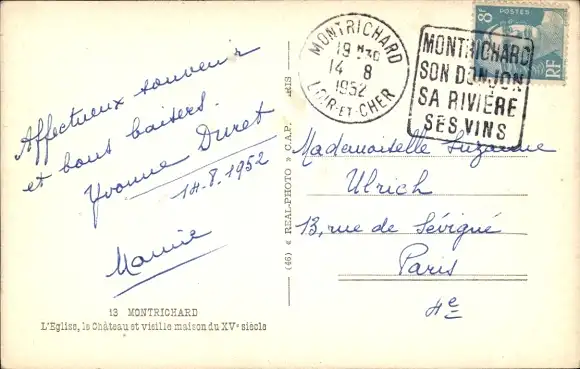 Affectueux souvenir
et bons baisers.
Yvonne Duret
14-8.1952
Mamie
13 MONTRICHARD
L'Eglise, le Château et vieille maison du XVe siècle
(46) « REAL-PHOTO » C.A.P. RIS
MONTRICHARD
19H30
14 8
1952
LOIR-ET-CHER
MONTRICHARD
SON DONJON
SA RIVIÈRE
SES VINS
8F
POSTES
RF
Mademoiselle Suzanne
Ulrich
13, rue de Sévigné
Paris
4e